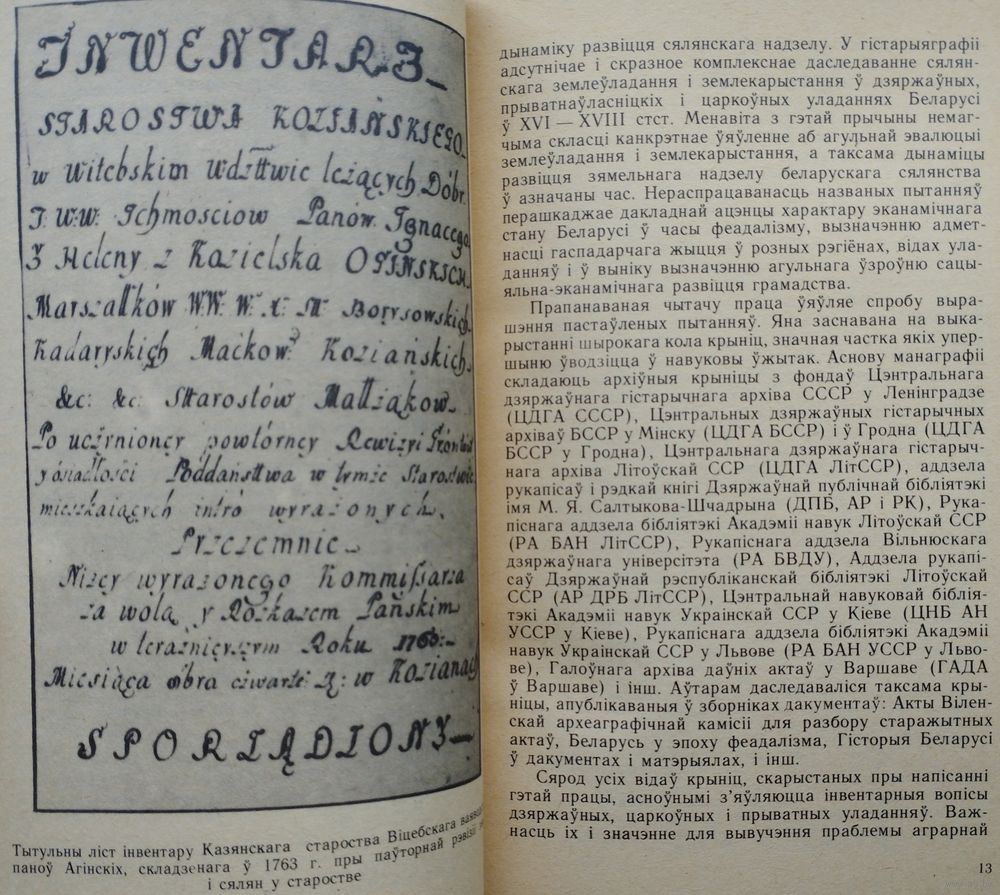 INWENTARZ
STAROSTWA KOZIAŃSKIEGO
w Witebskim Wdzttwie leżących Dóbr
J. W.W. Ichmosciow Panów Ignacego
Y Heleny z Kozielska OGIŃSKICH
Marszałków WW. W. X. Lit. Borysowskich
Kadaryskich Maćkow. Koziańskich
&c: &c: Starostów Małżąkow
Po uczynioney powtórney Rewizyi
y osiadłości Poddaństwa w tymże Starostwie
mieszkaiących intro wyrażonych.
Przezemnie
Niżey wyrażonego Kommissarza
za wolą y Rozkazem Pańskim
w teraźnieyszym Roku 1763
Miesiąca 8bra czwarte w Kozianach
SPORZĄDZONY
Тытульны ліст інвентару Казянскага староства Віцебскага
паноў Агінскіх, складзенага ў 1763 г. пры паўторнай рэвізіі
і сялян у старостве
дынаміку развіцця сялянскага надзелу. У гістарыяграфіі
адсутнічае і скразное комплекснае даследаванне сялян-
скага землеўладання і землекарыстання ў дзяржаўных,
прыватнаўласніцкіх і царкоўных уладаннях Беларусі
ў XVI — XVIII стст. Менавіта з гэтай прычыны немаг-
чыма скласці канкрэтнае ўяўленне аб агульнай эвалюцыі
землеўладання і землекарыстання, а таксама дынаміцы
развіцця зямельнага надзелу беларускага сялянства
ў азначаны час. Нераспрацаванасць названых пытанняў
перашкаджае дакладнай ацэнцы характару эканамічнага
стану Беларусі ў часы феадалізму, вызначэнню адмет-
насці гаспадарчага жыцця ў розных рэгіёнах, відах ула-
данняў і ў выніку вызначэнню агульнага ўзроўню сацы-
яльна-эканамічнага развіцця грамадства.
Прапанаваная чытачу праца ўяўляе спробу выра-
шэння пастаўленых пытанняў. Яна заснавана на выка-
рыстанні шырокага кола крыніц, значная частка якіх упер-
шыню ўводзіцца ў навуковы ўжытак. Аснову манаграфіі
складаюць архіўныя крыніцы з фондаў Цэнтральнага
дзяржаўнага гістарычнага архіва СССР у Ленінградзе
(ЦДГА СССР), Цэнтральных дзяржаўных гістарычных
архіваў БССР у Мінску (ЦДГА БССР) і ў Гродна (ЦДГА
БССР у Гродна), Цэнтральнага дзяржаўнага гістарыч-
нага архіва Літоўскай ССР (ЦДГА ЛітССР), аддзела
рукапісаў і рэдкай кнігі Дзяржаўнай публічнай бібліятэкі
імя М. Я. Салтыкова-Шчадрына (ДПБ, АР і РК), Рука-
піснага аддзела бібліятэкі Акадэміі навук Літоўскай ССР
(РА БАН ЛітССР), Рукапіснага аддзела Вільнюскага
дзяржаўнага універсітэта (РА БВДУ), Аддзела рукапі-
саў Дзяржаўнай рэспубліканскай бібліятэкі Літоўскай
ССР (АР ДРБ ЛітССР), Цэнтральнай навуковай бібліятэ-
тэкі Акадэміі навук Украінскай ССР у Кіеве (ЦНБ АН
УССР у Кіеве), Рукапіснага аддзела бібліятэкі Акадэміі
навук Украінскай ССР у Львове (РА БАН УССР у Льво-
ве), Галоўнага архіва даўніх актаў у Варшаве (ГАДА
ў Варшаве) і інш. Аўтарам даследаваліся таксама кры-
ніцы, апублікаваныя ў зборніках дакументаў: Акты Вілен-
скай археаграфічнай камісіі для разбору старажытных
актаў, Беларусь у эпоху феадалізма, Гісторыя Беларусі
ў дакументах і матэрыялах, і інш.
Сярод усіх відаў крыніц, скарыстаных пры напісанні
гэтай працы, асноўнымі з'яўляюцца інвентарныя вопісы
дзяржаўных, царкоўных і прыватных уладанняў. Важ-
насць іх і значэнне для вывучэння праблемы аграрнай
13